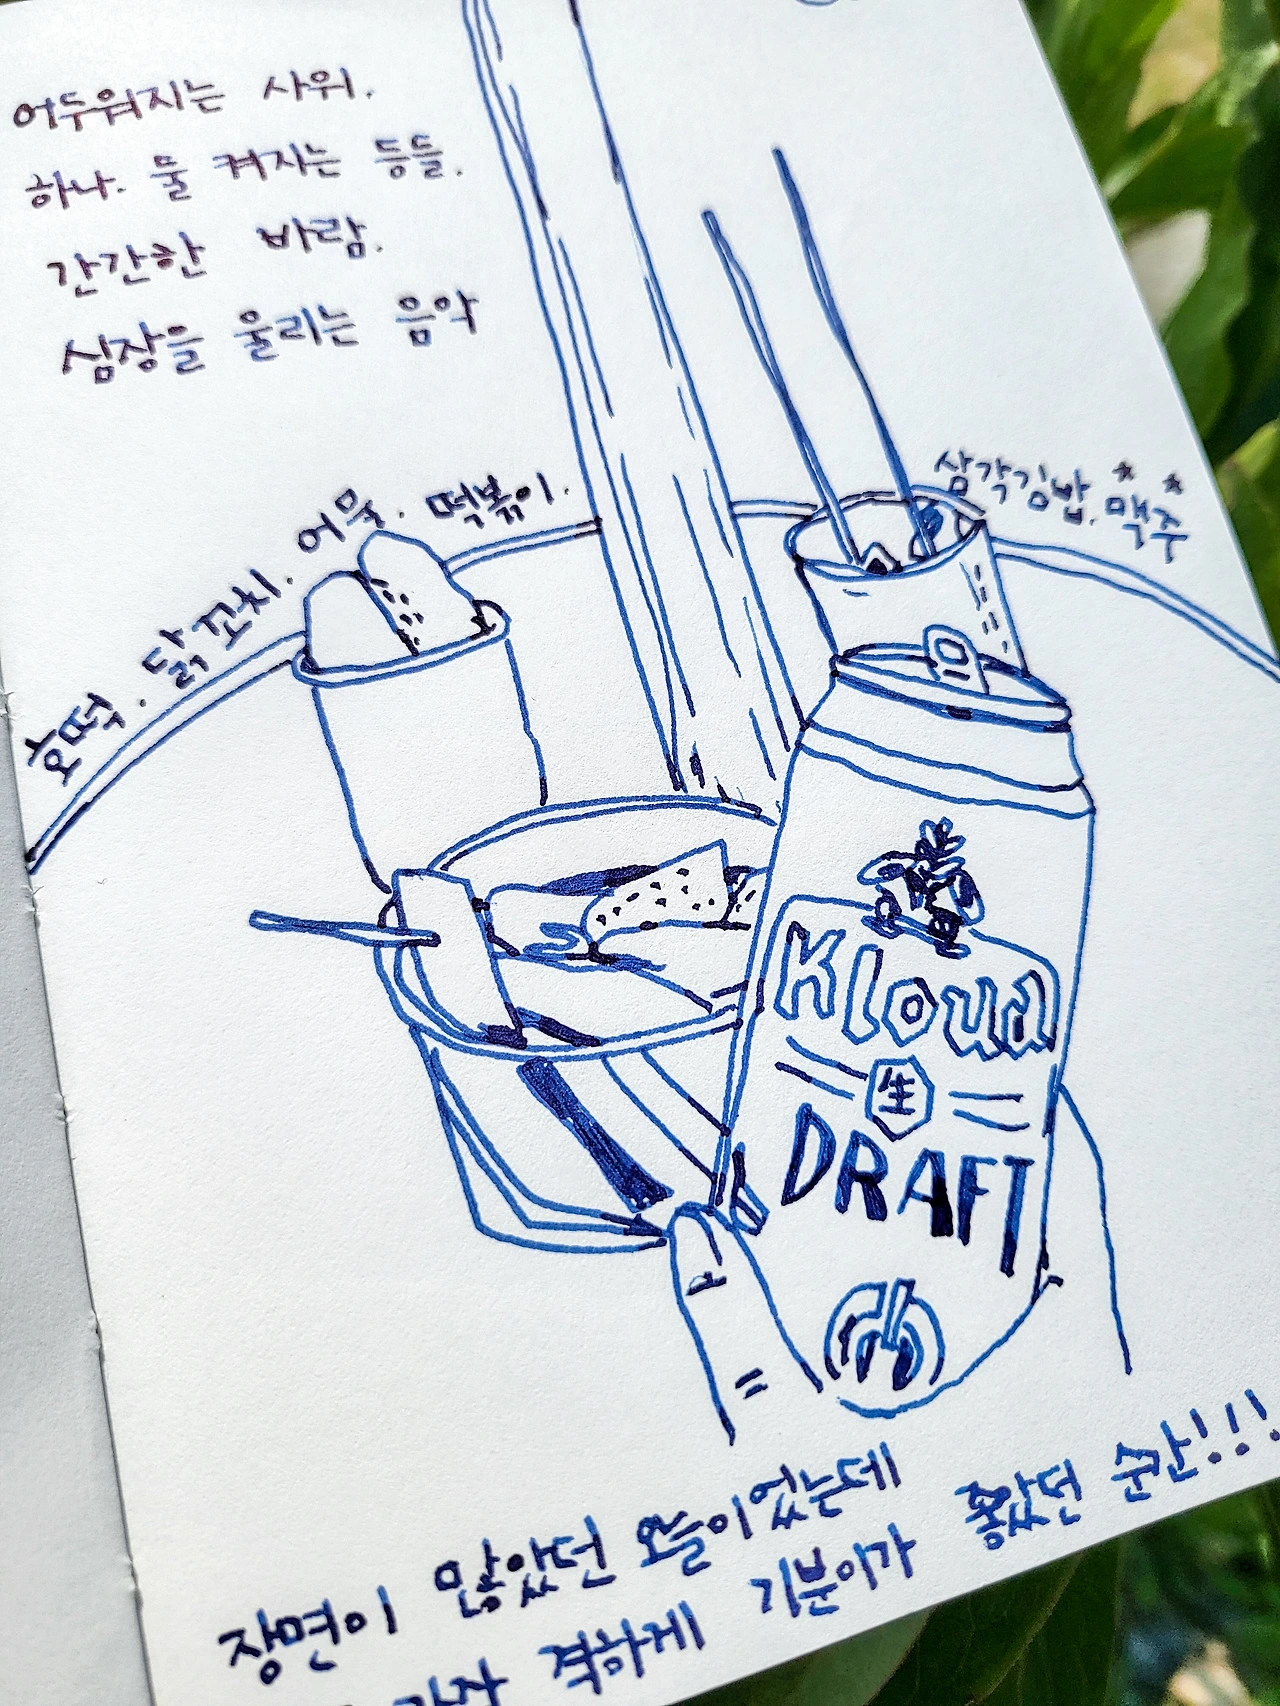 어두워지는 사위.
하나. 둘 켜지는 등들.
간간한 바람.
심장을 울리는 음악
호떡. 닭꼬치. 어묵. 떡볶이.
삼각김밥. *맥주*
Kloud
生
DRAFT
장면이 많았던 오늘이었는데
기분이가 좋았던 순간!!!